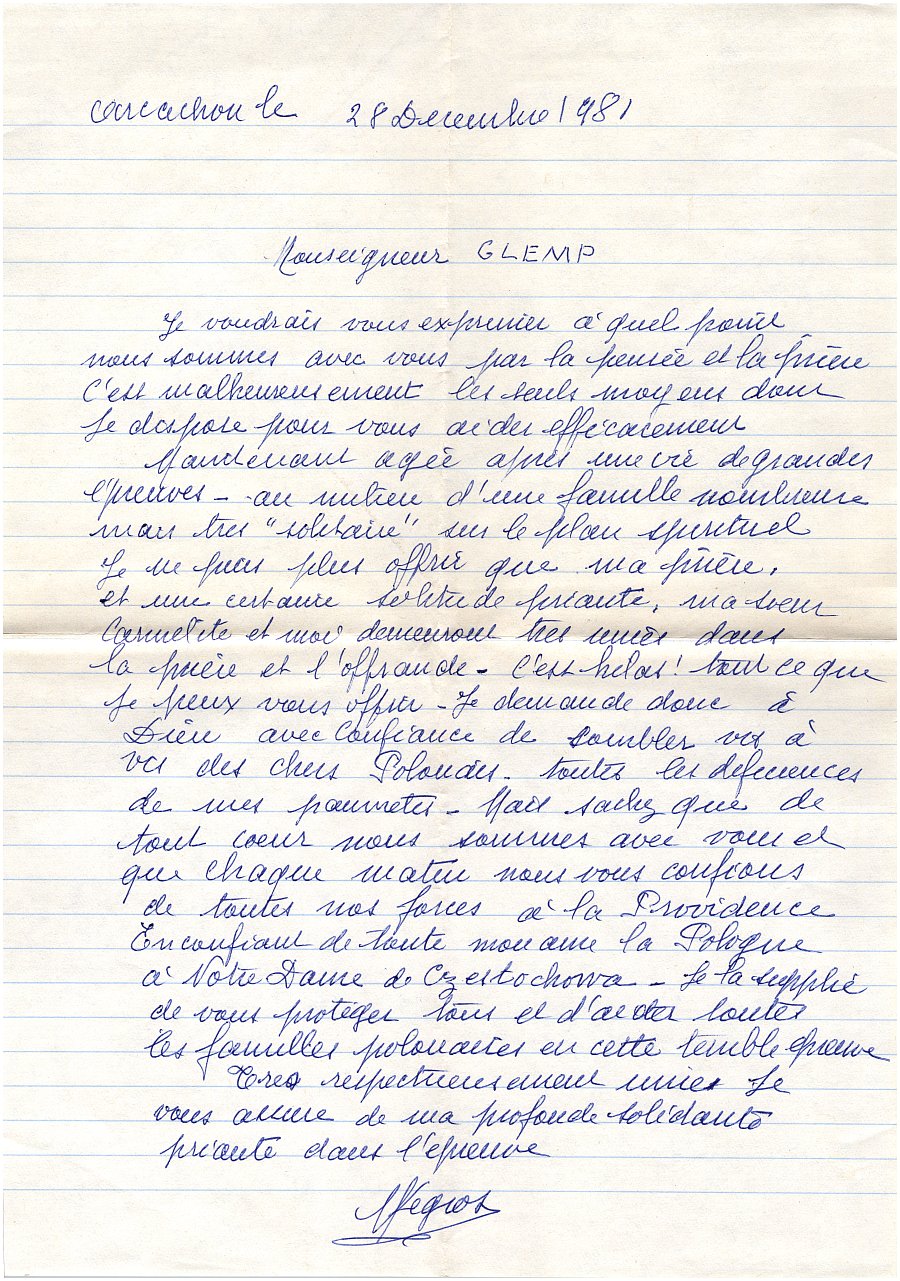 Arcachon le 28 Decembre 1981
Monseigneur GLEMP
Je voudrais vous exprimer à quel point
nous sommes avec vous par la pensée et la prière
C'est malheureusement les seuls moyens dont
Je dispose pour vous aider efficacement
Maintenant agée après une vie de grandes
épreuves - au milieu d'une famille nombreuse
mais très "solitaire" sur le plan spirituel
Je ne puis plus offrir que ma prière,
et une certaine solitude priante, ma soeur
Carmélite et moi demeurons très unies dans
la prière et l'offrande - C'est hélas! tout ce que
je peux vous offrir - Je demande donc à
Dieu avec Confiance de combler vis à
vis des chers Polonais - toutes les deficiences
de mes pauvretés - Mais sachez que de
tout coeur nous sommes avec vous et
que chaque matin nous vous confions
de toutes nos forces à la Providence
En confiant de toute mon ame la Pologne
à Notre Dame de Czestochowa - Je la supplie
de vous protéger tous et d'aider toutes
les familles polonaises en cette terrible épreuve
Très respectueusement unie Je
vous assure de ma profonde solidarité
priante dans l'épreuve